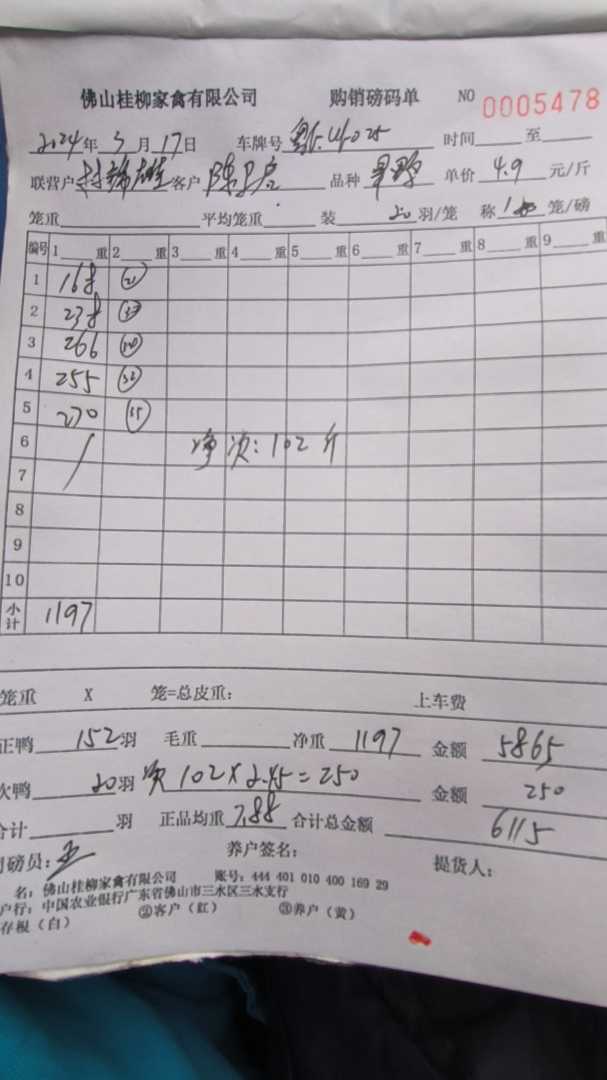 佛山桂柳家禽有限公司 购销磅码单 NO 0005478
2024年5月17日 车牌号 时间 至
联营户 客户 陈 品种 单价 4.9 元/斤
笼重 平均笼重 装 20 羽/笼 称 笼/磅
编号 1 重 2 重 3 重 4 重 5 重 6 重 7 重 8 重 9 重
1 168 21
2 238
3 266
4 255 32
5 270 35
6 净次:102斤
7
8
9
10
小计 1197
笼重 X 笼=总皮重: 上车费
正鸭 152 羽 毛重 净重 1197 金额 5865
次鸭 20 羽 次 102×2.45=250 金额 250
合计 羽 正品均重 7.88 合计总金额 6115
司磅员: 养户签名: 提货人:
名:佛山桂柳家禽有限公司 账号:444 401 010 400 169 29
户行:中国农业银行广东省佛山市三水区三水支行
存根(白) ②客户(红) ③养户(黄)